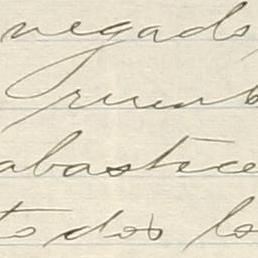 negado,
abastece
todos lo